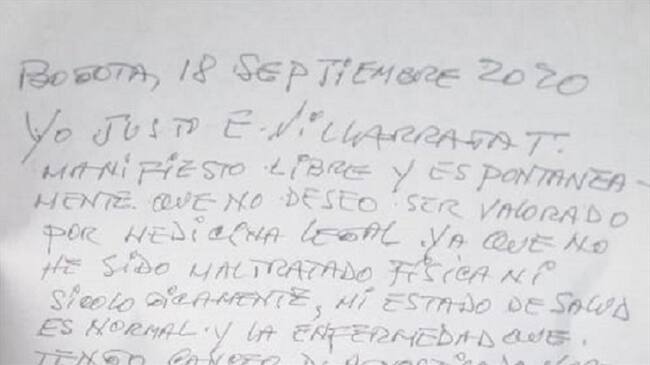 BOGOTA, 18 SEPTIEMBRE 2020
YO JUSTO E. VILLARRAGA T.
MANIFIESTO LIBRE Y ESPONTANEA-
MENTE QUE NO DESEO SER VALORADO
POR MEDICINA LEGAL. YA QUE NO
HE SIDO MALTRATADO FISICA NI
SICOLOGICAMENTE, MI ESTADO DE SALUD
ES NORMAL. Y LA ENFERMEDAD QUE.
TENGO CANCER